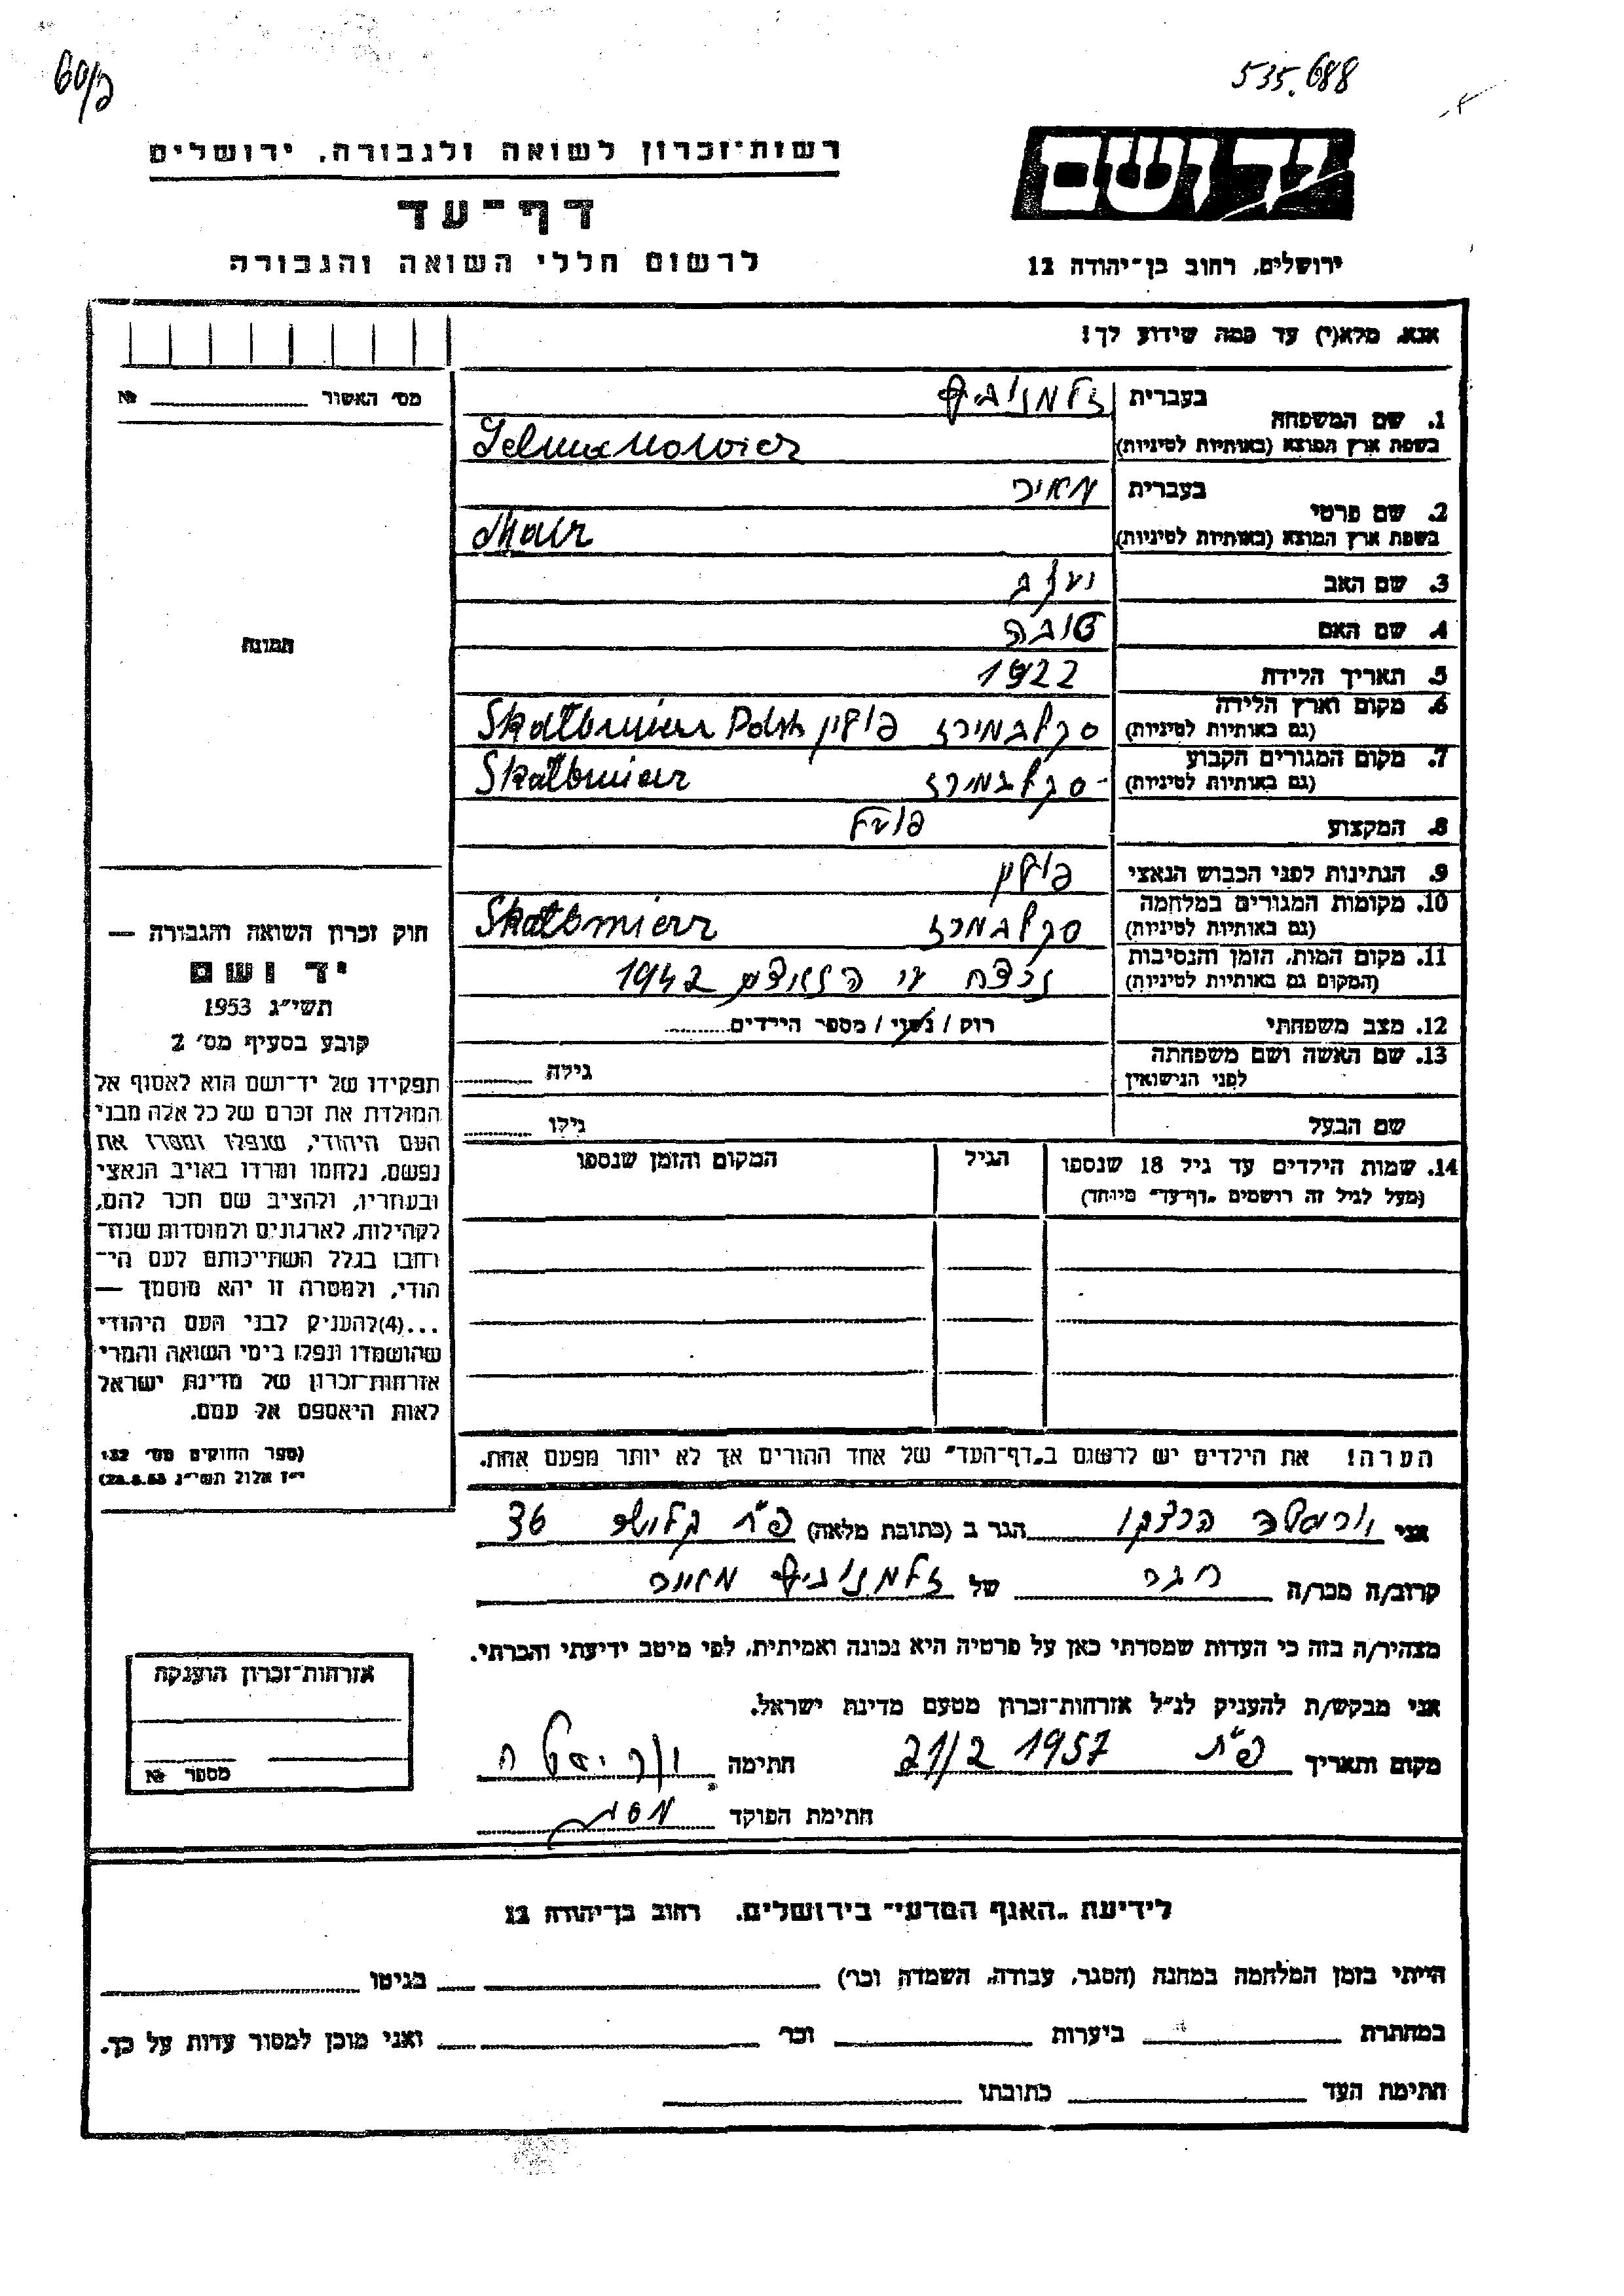 535.688
רשות־זכרון לשואה ולגבורה, ירושלים
דף־עד
לרשום חללי השואה והגבורה
יד ושם
ירושלים, רחוב בן־יהודה 12
אנא, מלא(י) עד כמה שידוע לך!
מס׳ האשור №
1. שם המשפחה בעברית זלמנוביץ
בשפת ארץ המוצא (באותיות לטיניות) Zelmanowicz
2. שם פרטי בעברית מאיר
בשפת ארץ המוצא (באותיות לטיניות) Mair
3. שם האב יעקב
4. שם האם טובה
5. תאריך הלידה 1922
6. מקום וארץ הלידה
(גם באותיות לטיניות) סקלבמירז פולין Skalbmierz
7. מקום המגורים הקבוע
(גם באותיות לטיניות) סקלבמירז Skalbmierz
8. המקצוע פועל
9. הנתינות לפני הכבוש הנאצי פולין
10. מקומות המגורים במלחמה
(גם באותיות לטיניות) סקלבמרז Skalbmierz
11. מקום המות, הזמן והנסיבות
(המקום גם באותיות לטיניות) נרצח ע״י הנאצים 1942
12. מצב משפחתי רווק / נשוי / מספר הילדים
13. שם האשה ושם משפחתה
לפני הנישואין גילה
שם הבעל גילו
14. שמות הילדים עד גיל 18 שנספו הגיל המקום והזמן שנספו
(מעל לגיל זה רושמים „דף־עד״ מיוחד)
הערה! את הילדים יש לרשום ב„דף־העד״ של אחד ההורים אך לא יותר מפעם אחת.
תמונה
חוק זכרון השואה והגבורה —
יד ושם
תשי״ג 1953
קובע בסעיף מס׳ 2
תפקידו של יד־ושם הוא לאסוף אל
המולדת את זכרם של כל אלה מבני
העם היהודי, שנפלו ומסרו את
נפשם, נלחמו ומרדו באויב הנאצי
ובעוזריו, ולהציב שם וזכר להם,
לקהילות, לארגונים ולמוסדות שנח־
רבו בגלל השתייכותם לעם הי־
הודי, ולמטרה זו יהא מוסמך —
...(4)להעניק לבני העם היהודי
שהושמדו ונפלו בימי השואה והמרי
אזרחות־זכרון של מדינת ישראל
לאות היאספם אל עמם.
(ספר החוקים מס׳ 132
י״ז אלול תשי״ג 28.8.53)
אני הגר ב (כתובת מלאה) פ״ת 36
קרוב/ה מכר/ה חבר של זלמנוביץ מאיר
מצהיר/ה בזה כי העדות שמסרתי כאן על פרטיה היא נכונה ואמיתית, לפי מיטב ידיעתי והכרתי.
אני מבקש/ת להעניק לנ״ל אזרחות־זכרון מטעם מדינת ישראל.
מקום ותאריך פ״ת 21/2 1957 חתימה
חתימת הפוקד
אזרחות־זכרון הוענקה
מספר №
לידיעת „האגף המדעי״ בירושלים, רחוב בן־יהודה 12
הייתי בזמן המלחמה במחנה (הסגר, עבודה, השמדה וכר׳) בגיטו
במחתרת ביערות וכר׳ ואני מוכן למסור עדות על כך.
חתימת העד כתובתו